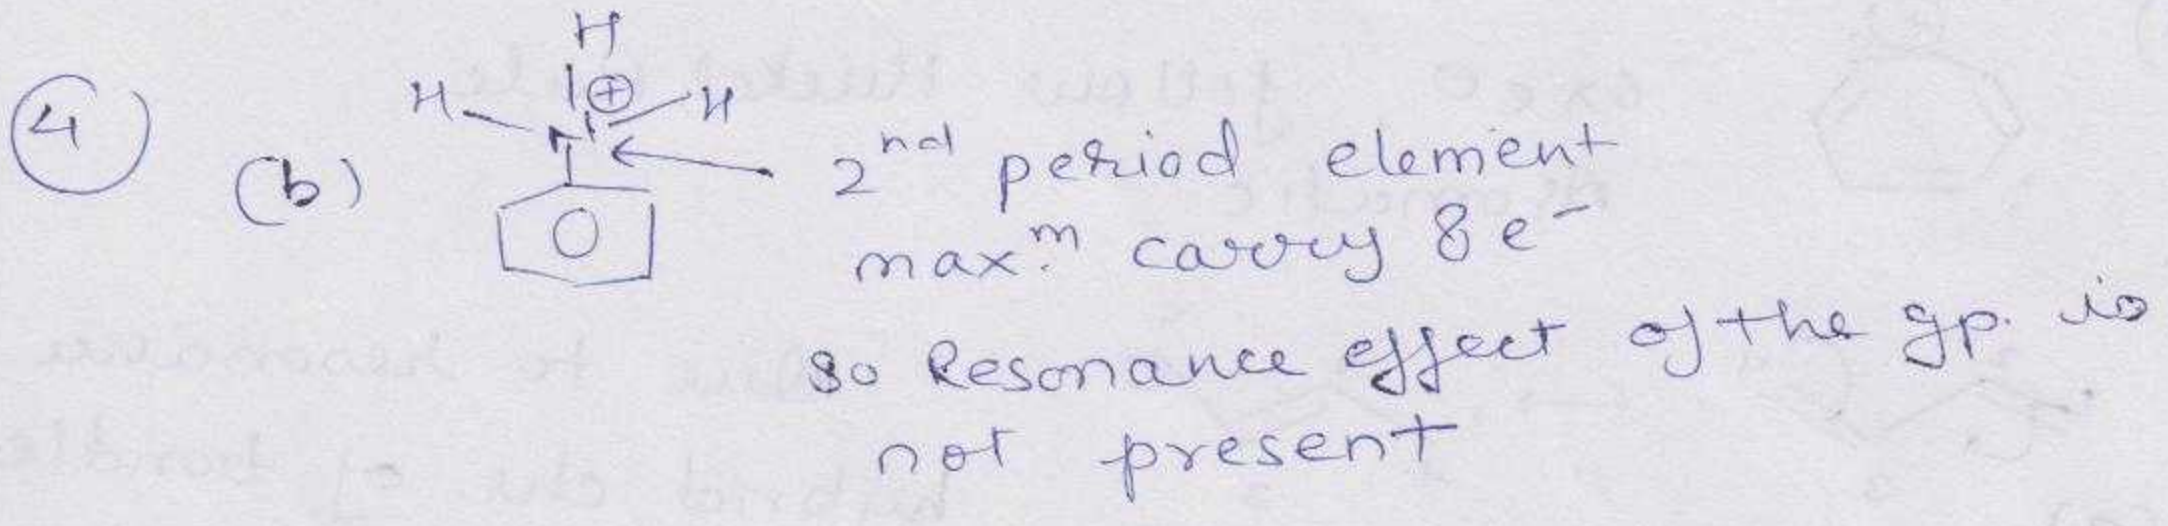 4
(b)
H
H ⊕ H
N
2nd period element
max.m carry 8 e-
so Resonance effect of the gp. is
not present